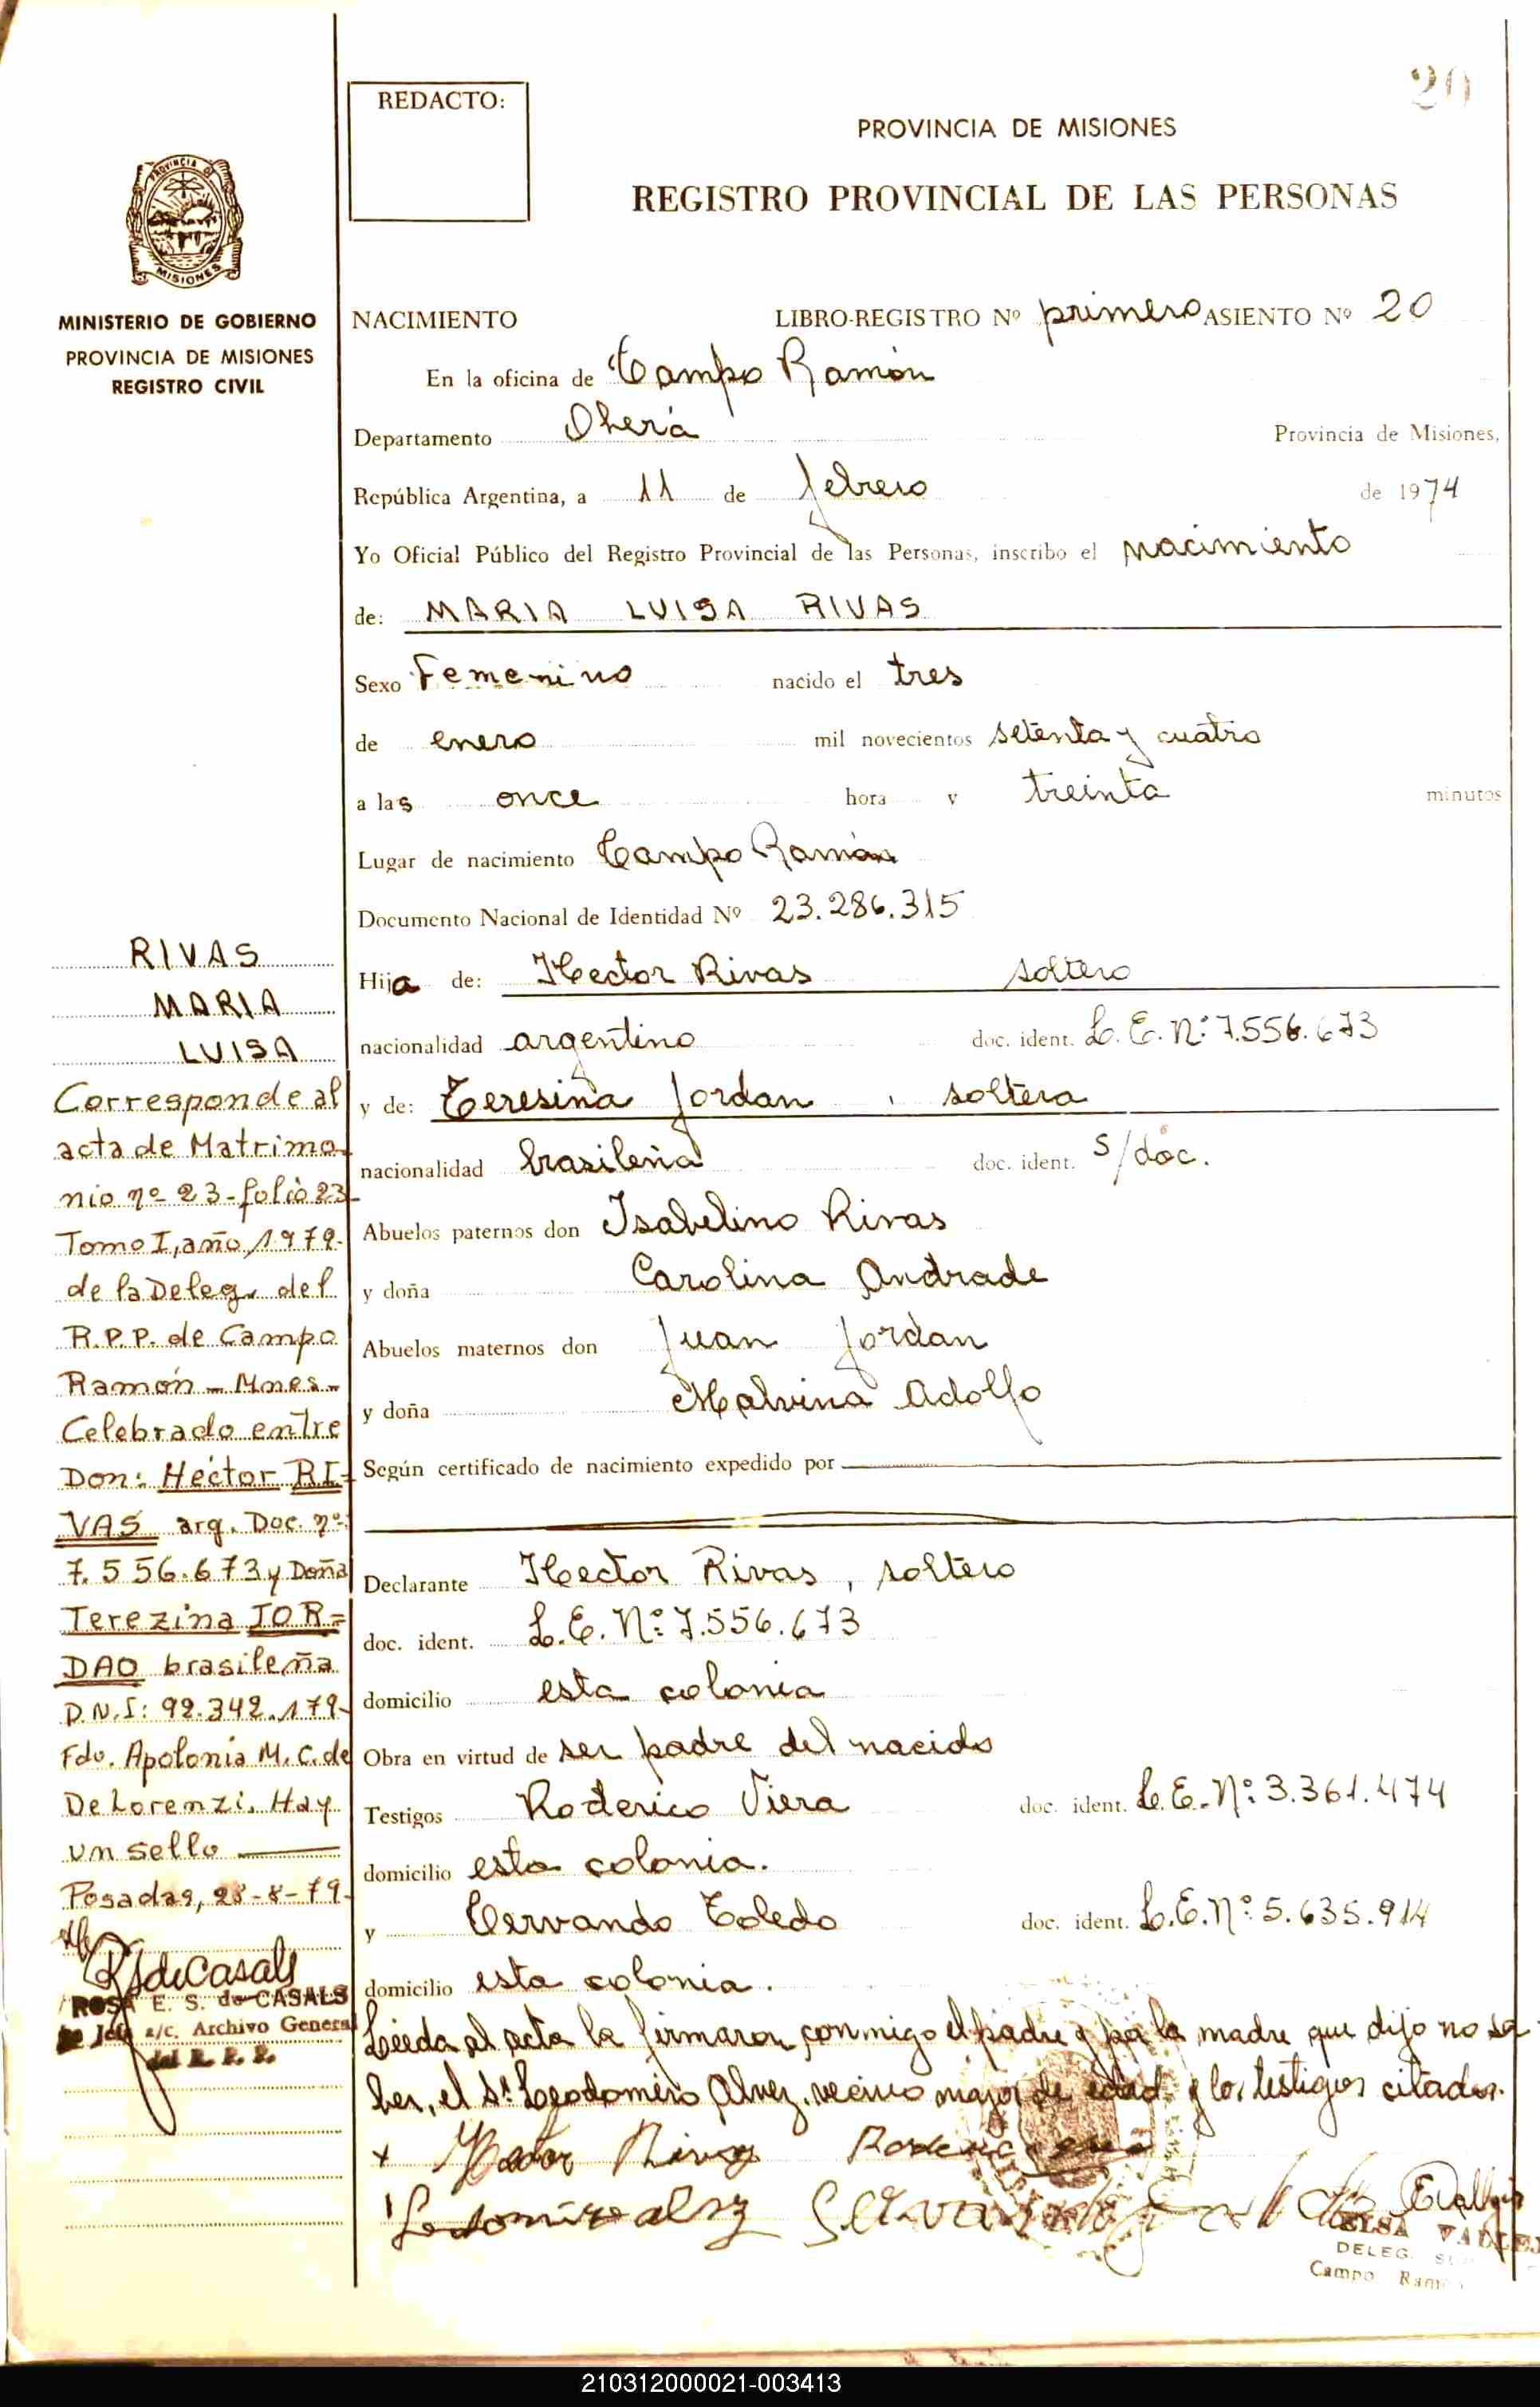 20
REDACTO:
PROVINCIA DE MISIONES
REGISTRO PROVINCIAL DE LAS PERSONAS
PROVINCIA DE
MISIONES
MINISTERIO DE GOBIERNO
PROVINCIA DE MISIONES
REGISTRO CIVIL
NACIMIENTO LIBRO-REGISTRO Nº primero ASIENTO Nº 20
En la oficina de Campo Ramón
Departamento Oberá Provincia de Misiones,
República Argentina, a 11 de febrero de 1974
Yo Oficial Público del Registro Provincial de las Personas, inscribo el nacimiento
de: MARIA LUISA RIVAS
Sexo Femenino nacido el tres
de enero mil novecientos setenta y cuatro
a las once hora y treinta minutos
Lugar de nacimiento Campo Ramón
Documento Nacional de Identidad Nº 23.286.315
Hija de: Hector Rivas soltero
nacionalidad argentino doc. ident. L. E. Nº: 7.556.673
y de: Teresina Jordan, soltera
nacionalidad brasileña doc. ident. s/doc.
Abuelos paternos don Isabelino Rivas
y doña Carolina Andrade
Abuelos maternos don Juan Jordan
y doña Malvina Adolfo
Según certificado de nacimiento expedido por
Declarante Hector Rivas, soltero
doc. ident. L.E. Nº: 7.556.673
domicilio esta colonia
Obra en virtud de ser padre del nacido
Testigos Roderico Viera doc. ident. L.E. Nº: 3.361.474
domicilio esta colonia.
y Cervando Toledo doc. ident. L.E. Nº: 5.635.914
domicilio esta colonia.
Leida el acta la firmaron conmigo el padre y por la madre que dijo no sa-
ber, el Sr. Leodomiro Alvez, vecino mayor de edad y los testigos citados.
Hector Rivas
ELSA
DELEG.
Campo Ramón
RIVAS
MARIA
LUISA
Corresponde al
acta de Matrimo-
nio nº 23-folio 23-
Tomo I, año 1979-
de la Deleg. del
R.P.P. de Campo
Ramón - Mnes-
Celebrado entre
Don: Hector RI=
VAS arg. Doc. nº:
7.556.673 y Doña
Terezina JOR=
DAO brasileña
D.N.I: 92.342.179-
Fdo. Apolonia M. C. de
De Lorenzi. Hay
un sello
Posadas, 28-8-79-
RSdeCasals
ROSA E. S. de CASALS
Jefe a/c. Archivo General
del R. P. P.
210312000021-003413